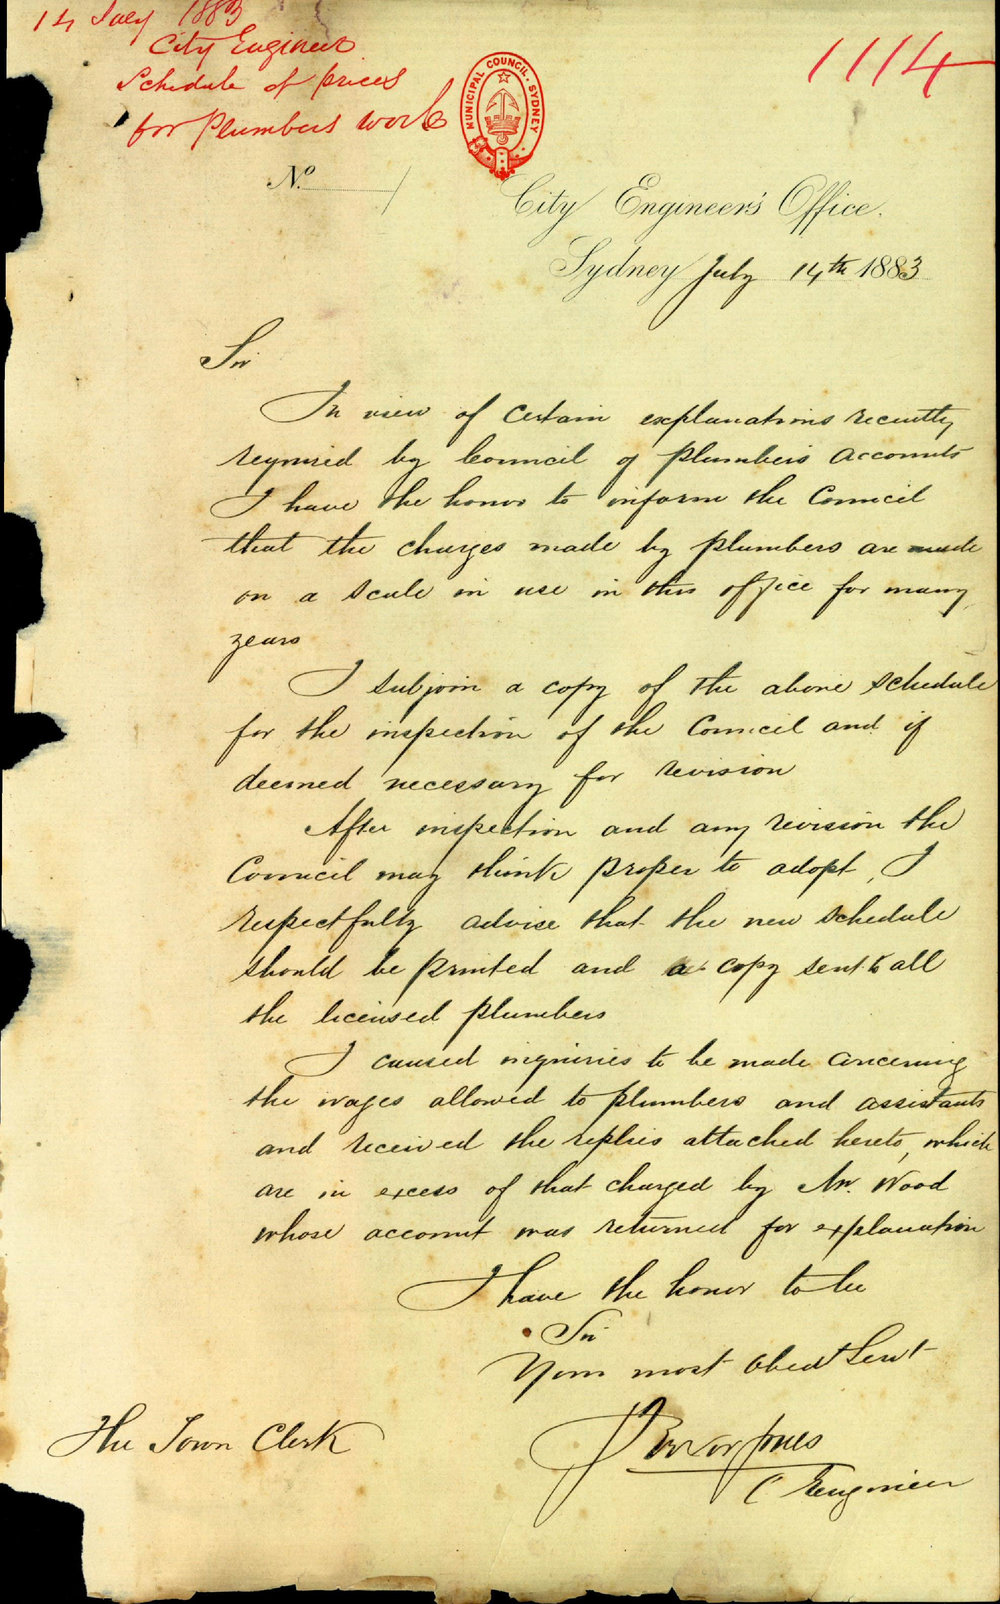 14 July 1883
City Engineer
Schedule of prices
for Plumbers work
1114
MUNICIPAL COUNCIL. SYDNEY
No.
City Engineer's Office.
Sydney July 14th 1883
Sir
In view of certain explanations recently
required by Council of plumbers accounts
I have the honor to inform the Council
that the charges made by plumbers are made
on a scale in use in this office for many
years
I subjoin a copy of the above schedule
for the inspection of the Council and if
deemed necessary for revision
After inspection and any revision the
Council may think proper to adopt, I
respectfully advise that the new schedule
should be printed and a copy sent to all
the licensed plumbers
I caused inquiries to be made concerning
the wages allowed to plumbers and assistants
and received the replies attached hereto, which
are in excess of that charged by Mr. Wood
whose account was returned for explanation
I have the honor to be
Sir
Your most obedt Servt
Trevor Jones
C Engineer
The Town Clerk